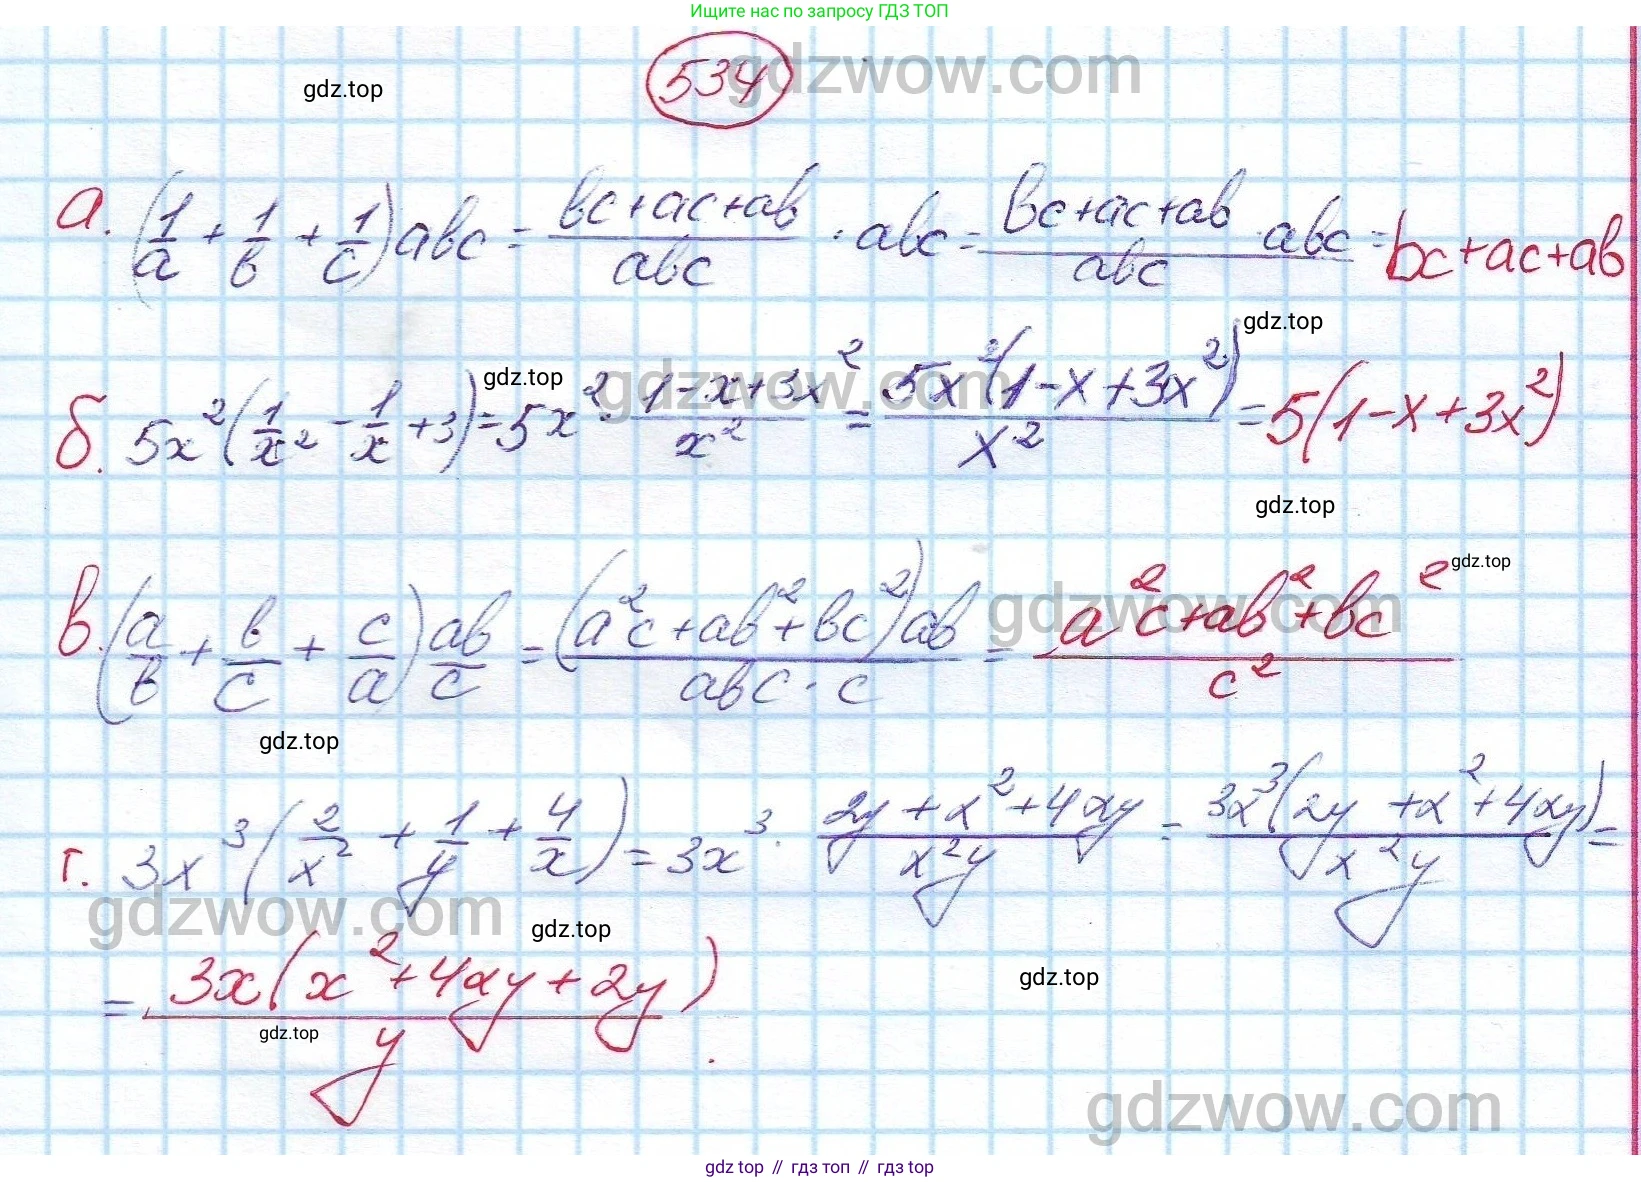 Ищите нас по запросу ГДЗ ТОП
gdzwow.com
gdz.top
534
а. (1/a + 1/b + 1/c) abc = (bc+ac+ab)/(abc) · abc = ((bc+ac+ab) · abc)/(abc) = bc+ac+ab
gdz.top
gdz.top
gdzwow.com
б. 5x²(1/x² - 1/x + 3) = 5x² · (1-x+3x²)/x² = 5x²(1-x+3x²)/x² = 5(1-x+3x²)
gdz.top
gdz.top
gdzwow.com
в. (a/b + b/c + c/a) ab/c = (a²c+ab²+bc²)ab/(abc·c) = (a²c+ab²+bc²)/c²
gdz.top
г. 3x³(2/x² + 1/y + 4/x) = 3x³ · (2y+x²+4xy)/(x²y) = 3x³(2y+x²+4xy)/(x²y) =
gdzwow.com
gdz.top
gdz.top
= 3x(x²+4xy+2y)/y.
gdz.top
gdzwow.com
gdz top // гдз топ // gdz top